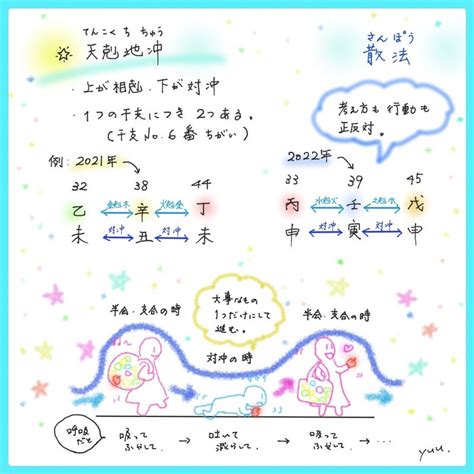 てんこくち ちゅう
天剋地冲
さんぽう
散法
・上が相剋、下が対冲
・1つの干支につき 2つある。
(干支No.6番ちがい)
考え方も行動も
正反対。
例:2021年
32 38 44
乙 金剋木 辛 火剋金 丁
未 対冲 丑 対冲 未
2022年
33 39 45
丙 水剋火 壬 土剋水 戊
申 対冲 寅 対冲 申
半会・支合の時
大事なもの
1つだけにして
進む。
対冲の時
半会・支合の時
呼吸
だと
吸って
ふやして
→
吐いて
減らして
→
吸って
ふやして
→ ・・・
yuu.